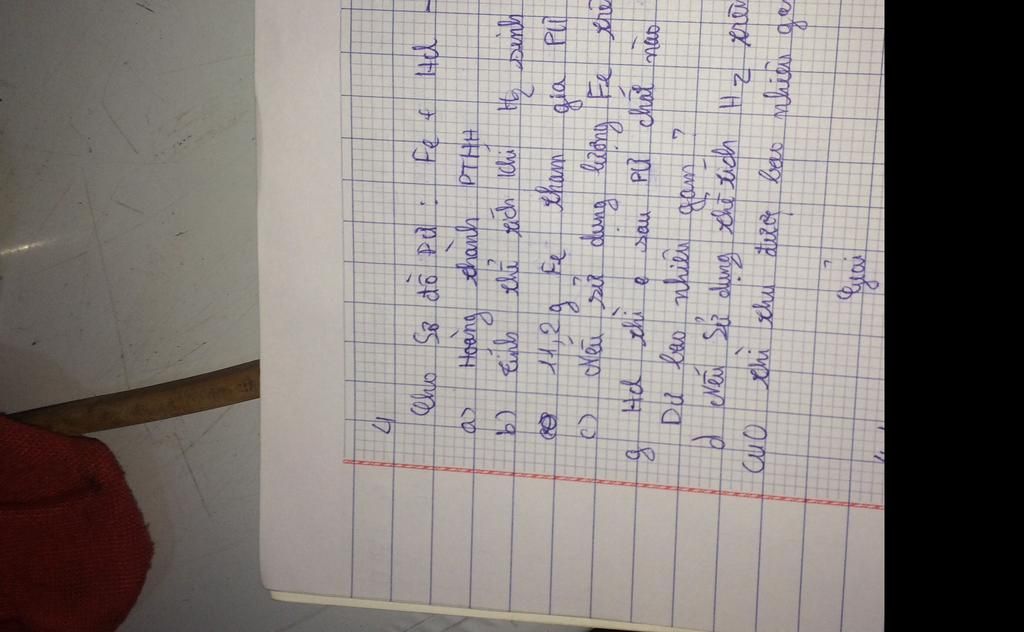 4
Cho Sơ đồ PƯ : Fe + Hcl
a) Hoàng thành PTHH
b) tính thể tích khí H2 sinh
11,2 g Fe tham gia PƯ
c) Nếu sử dụng lượng Fe trê
g Hcl thì sau PƯ chất nào
Dư bao nhiêu gam?
d) Nếu Sử dụng thể tích H2 trên
CuO thì thu được bao nhiêu ga
Giải